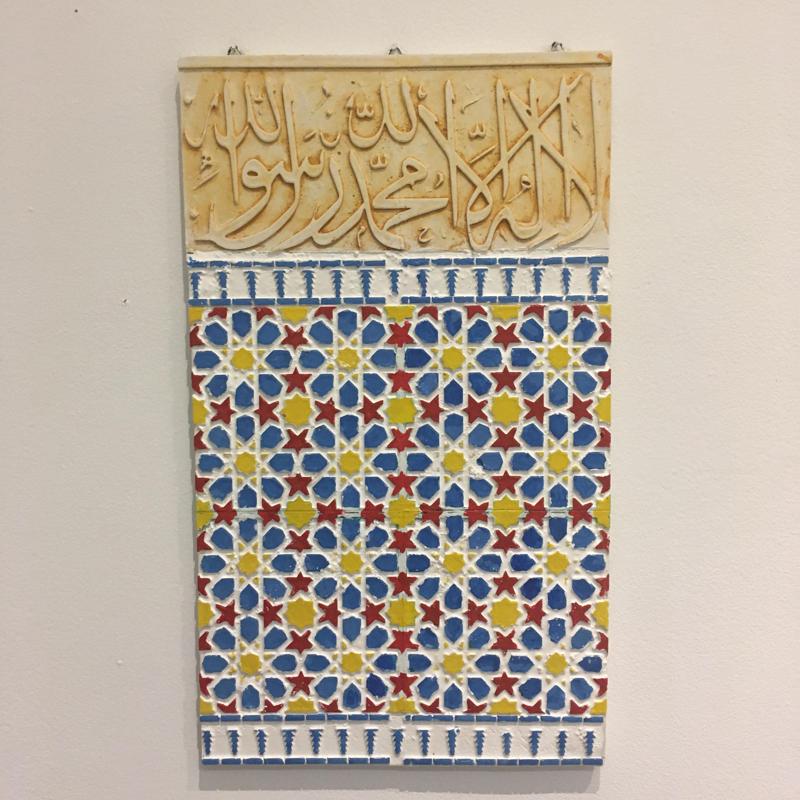 لا إله إلّا الله محمّد رسول الله